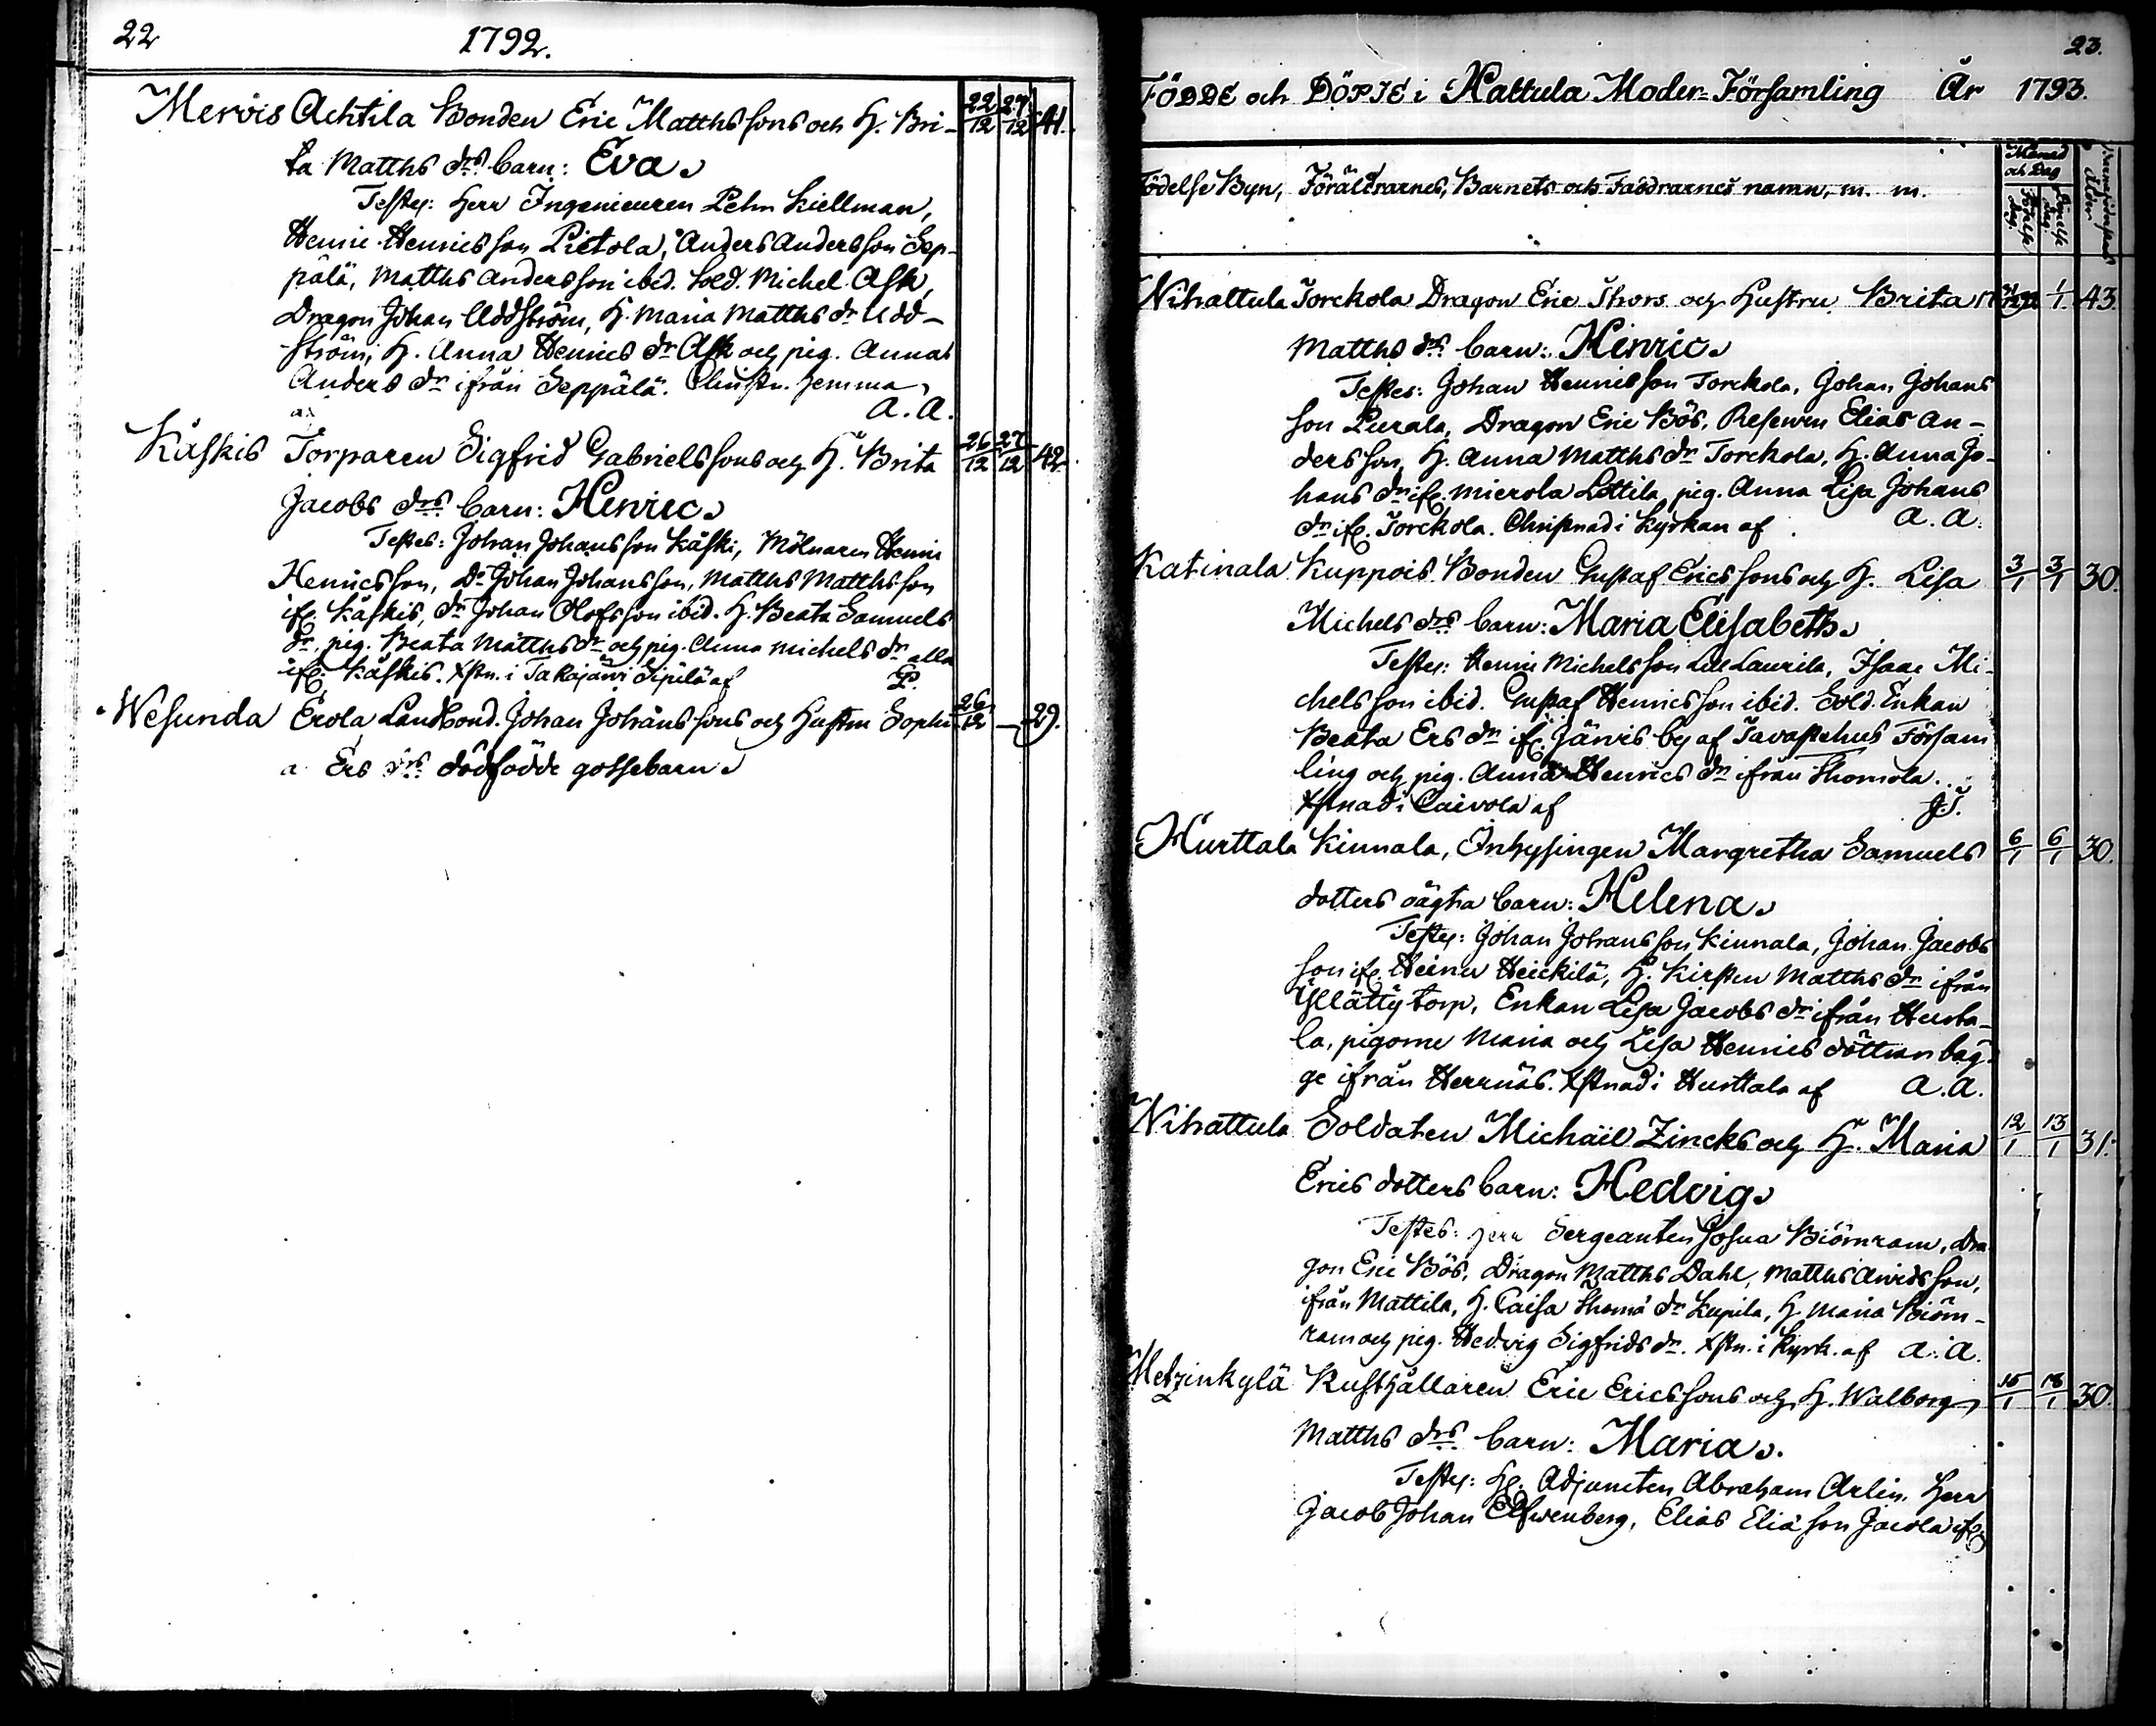 22
1792.
Mervis Achtila Bonden Eric Matthssons och H. Bri- 22/12 27/12 41.
ta Matths drs barn: Eva.
Testes: Herr Ingenieuren Pehr Kiellman,
Henric Henricsson Pietola, Anders Andersson Sep-
pälä, Matths Andersson ibid. Sold. Michel Ask,
Dragon Johan Uddström, H. Maria Matths dr Udd-
ström, H. Anna Henrics dr Ask och pig. Anna
Anders dr ifrån Seppälä. Christn. hemma
a. A.A.
Käskis Torparen Sigfrid Gabrielssons och H. Brita 26/12 27/12 42
Jacobs drs barn: Henric.
Testes: Johan Johansson Käski, Mölnaren Henric
Henricsson, Dr Johan Johansson, Matths Matthsson
ifr. Käskis, dr Johan Olofsson ibid. H. Beata Samuels
dr, pig. Beata Matths dr och pig. Anna Michels dr alla
ifr. Käskis. Xstn. i Takajärvi Sipilä af
Wesunda Erola Landbond. Johan Johanssons och Hustru Sophi 26/12 — 29.
a Ers drs dödfödde gossebarn.
23.
FÖDDE och DÖPTE i Hattula Moder-Församling År 1793.
Födelse Byn, Föräldrarnes, Barnets och Faddrarnes namn, m. m. Månad och Dag
Nihattula Torckola Dragon Eric Thors och Hustru Brita 1/1 43.
Matths drs barn: Henric.
Testes: Johan Henricsson Torckola, Johan Johans
son Purala, Dragon Eric Bös, Reserven Elias An-
dersson, H. Anna Matths dr Torckola, H. Anna Jo-
hans dr ifr. Mierola Lottila, pig. Anna Lisa Johans
dr ifr. Torckola. Christnad i Kyrkan af A.A.
Katinala Kuppois Bonden Gustaf Ericssons och H. Lisa 3/1 3/1 30.
Michels drs barn: Maria Elisabeth.
Testes: Henric Michelsson Laurila, Isaac Mi-
chelsson ibid. Gustaf Henricsson ibid. Sold. Enkan
Beata Ers dr ifr. Järvis by af Tavastehus Försam
ling och pig. Anna Henrics dr ifrån Thomola.
Xstnad i Caivola af J.T.
Hurttala Kinnala, Inhysingen Margretha Samuels 6/1 6/1 30.
dotters oägta barn: Helena.
Testes: Johan Johansson Kinnala, Johan Jacobs
son ifr. Heinu Heickilä, H. Kirsten Matths dr ifrån
Yllätty torp, Enkan Lisa Jacobs dr ifrån Hurta-
la, pigorne Maria och Lisa Henrics döttrar bäg-
ge ifrån Herrnäs. Xstnad i Hurttala af A.A.
Nihattula Soldaten Michaël Zincks och H. Maria 12/1 13/1 31.
Erics dotters barn: Hedvig.
Testes: Herr Sergeanten Josua Biörnram, Dra
gon Eric Bös, Dragon Matths Dahl, Matths Arvidsson,
ifrån Mattila, H. Caisa Thomæ dr Kupila, H. Maria Biörn-
ram och pig. Hedvig Sigfrids dr. Xstn. i Kyrk. af A.A.
Metzinkylä Rusthållaren Eric Ericssons och H. Walborg 15/1 18/1 30.
Matths drs barn: Maria.
Testes: Hr. Adjuncten Abraham Arlin, Herr
Jacob Johan Elfvenberg, Elias Eliæson Jacola ifr.